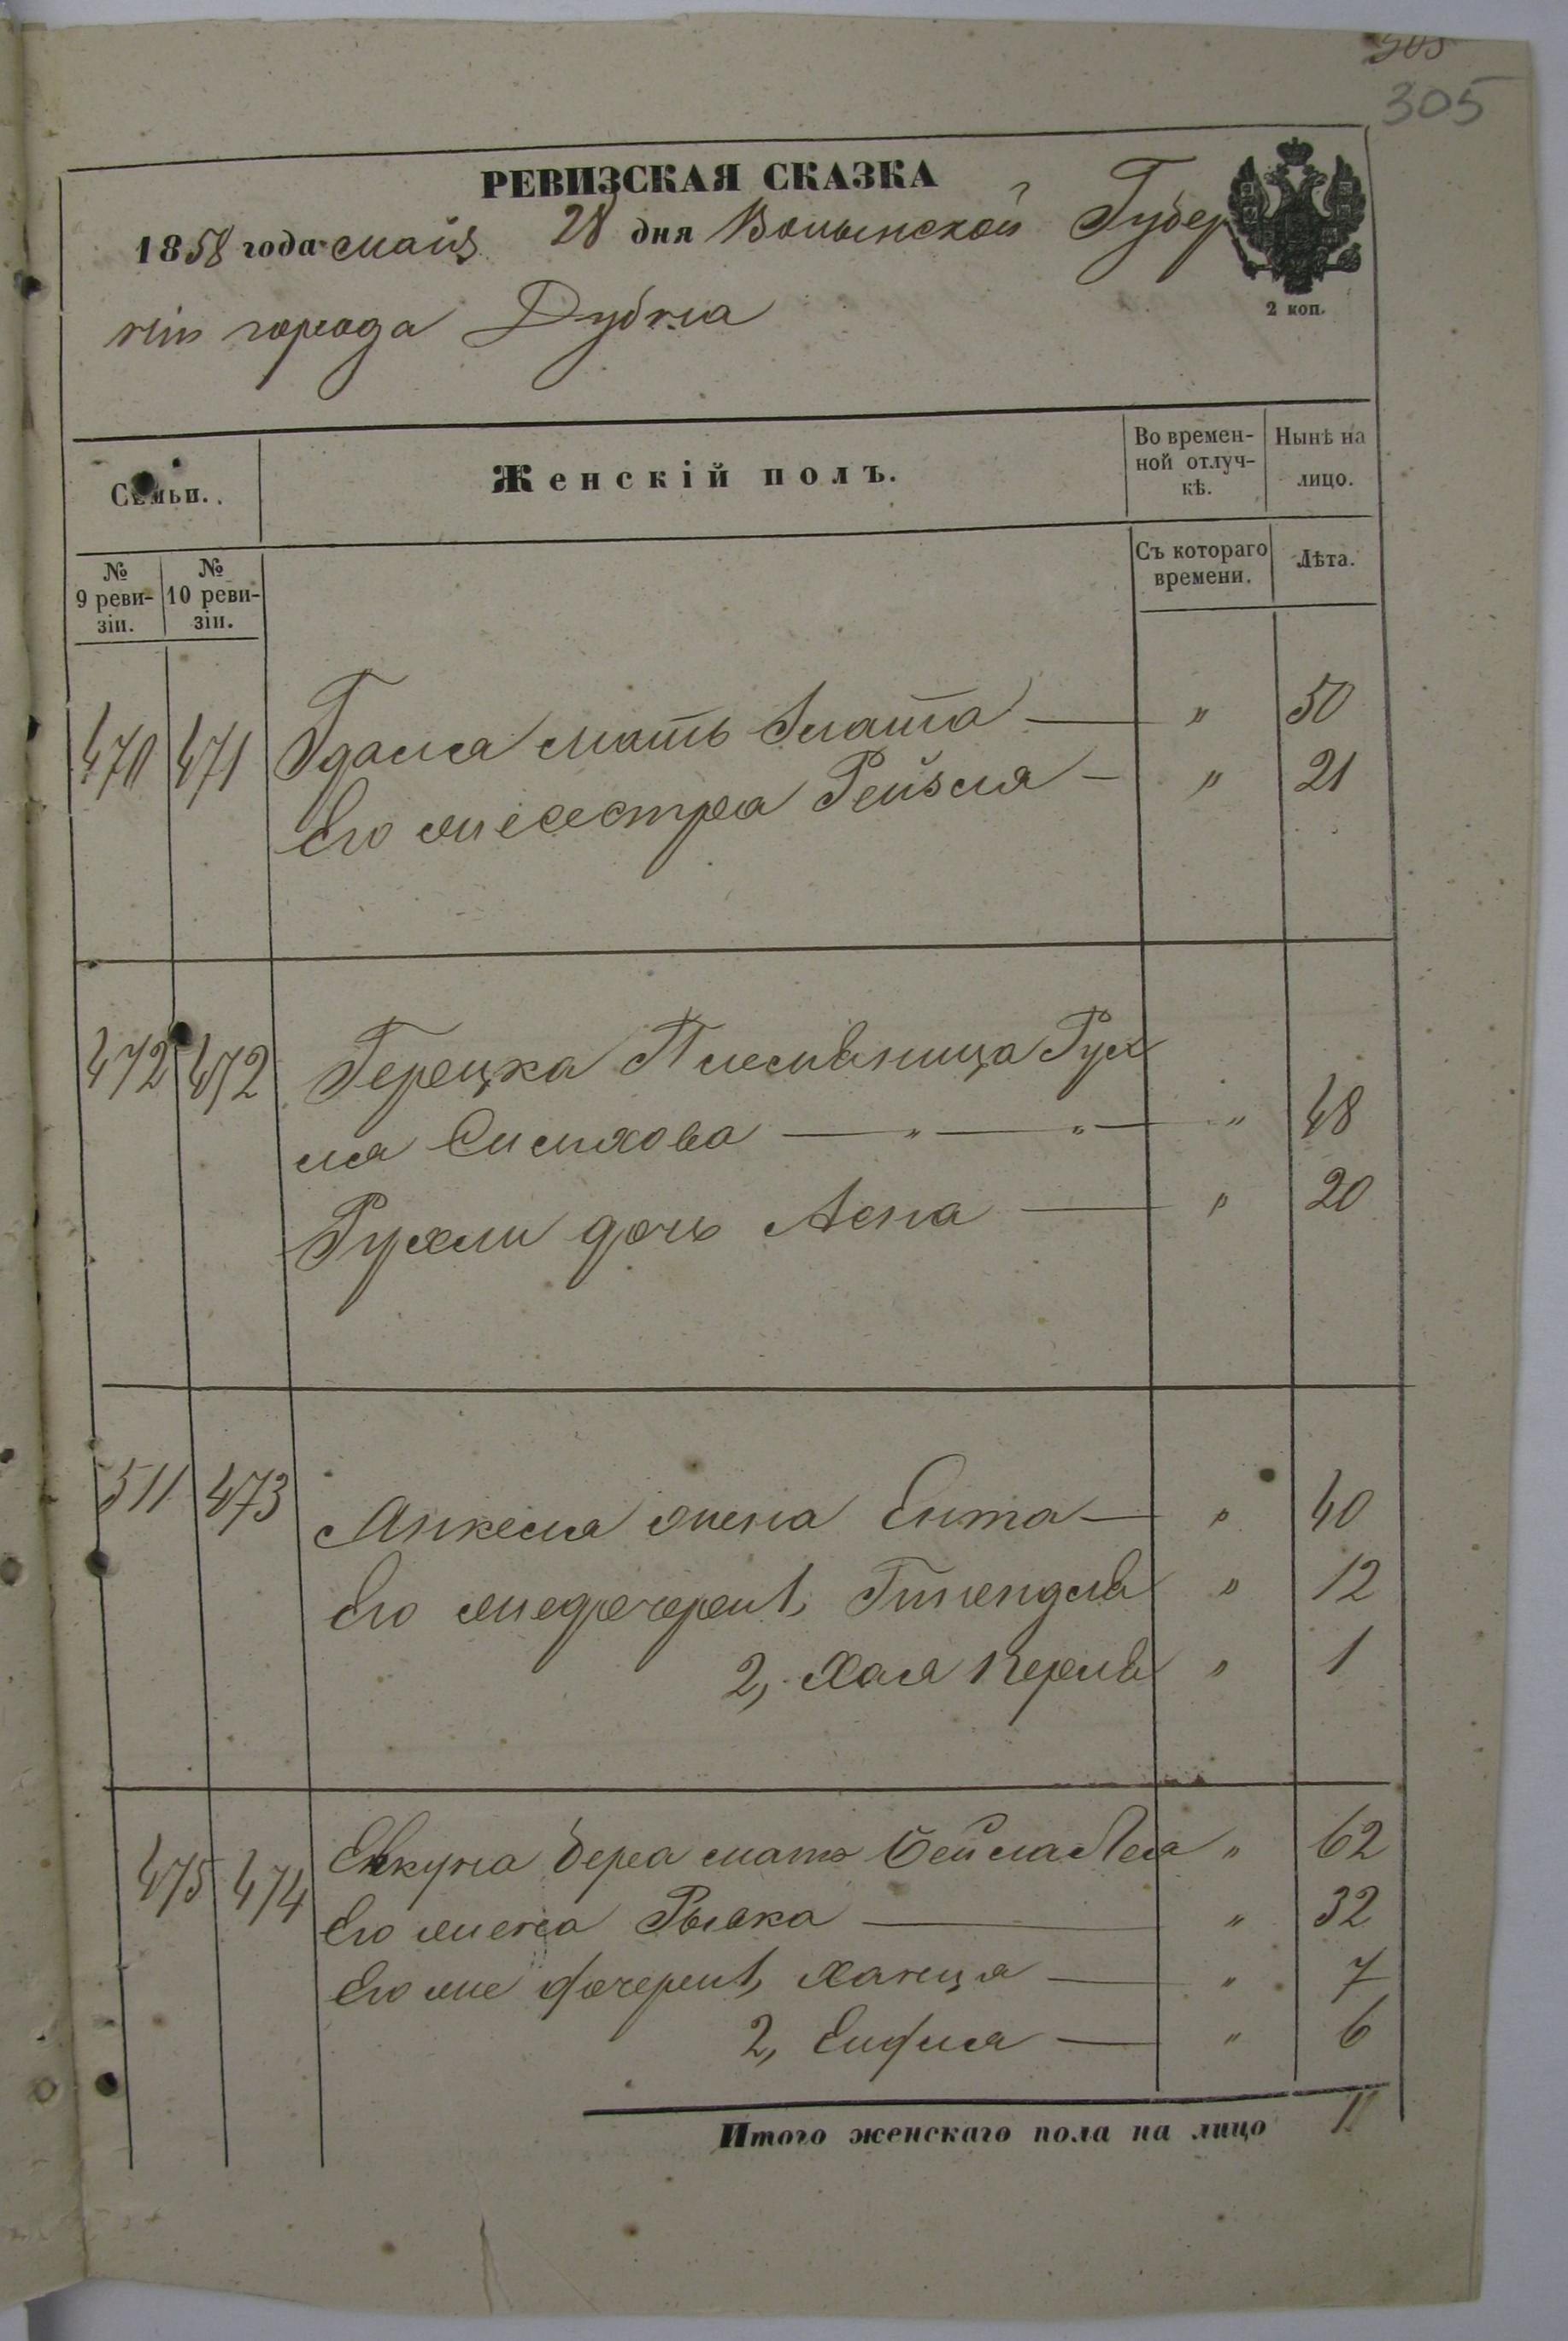 305
305
РЕВИЗСКАЯ СКАЗКА
1858 года мая 28 дня Волынской Губер
ніи города Дубна
2 коп.
Семьи.
Женскій полъ.
Во времен-
ной отлуч-
кѣ.
Нынѣ на
лицо.
№
9 реви-
зіи.
№
10 реви-
зіи.
Съ котораго
времени.
Лѣта.
470 471 Гдаля мать Злата — " 50
Его же сестра Рейзля — " 21
472 472 Герецка Племѣница Рух
ля Сисмхова — " — " — " 48
Рухли дочь Асна — " 20
511 473 Анкеля жена Ента — " 40
Его же дочери 1, Гтендлѣ " 12
2, Хая Перлѣ " 1
475 474 Енкуна Бера мать Бейла Лея " 62
Его жена Рывка — " 32
Его же дочери 1, Ханця — " 7
2, Ендля — " 6
Итого женскаго пола на лицо 11